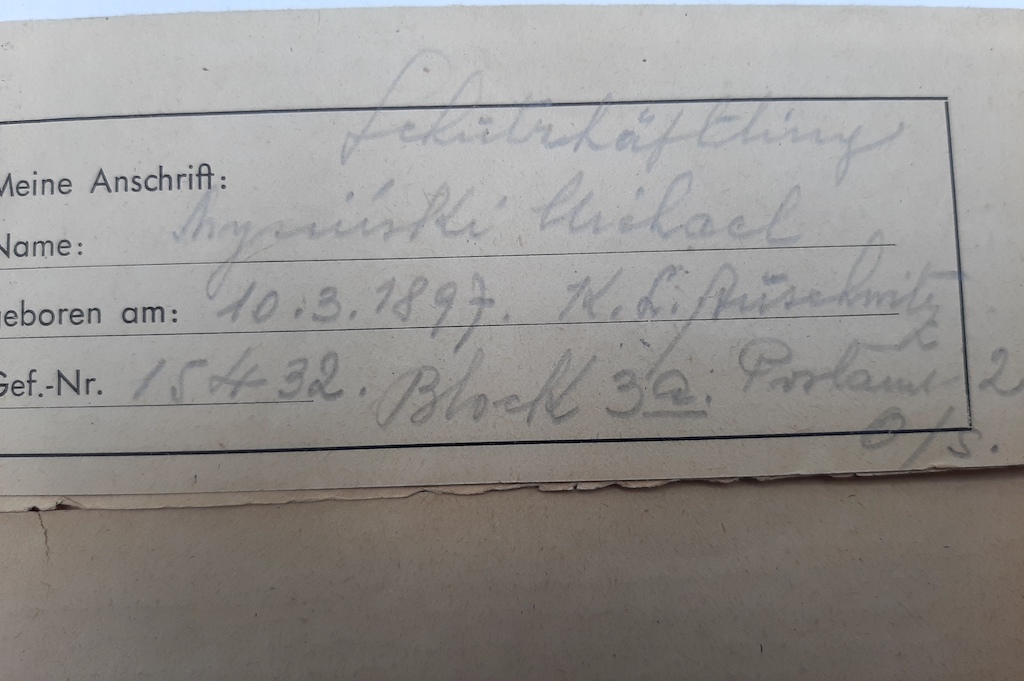 Schutzhäftling
Meine Anschrift:
Name: Michael
geboren am: 10.3.1897. K. L. Auschwitz
Gef.-Nr. 15432. Block 3a. Postamt 2
O/S.